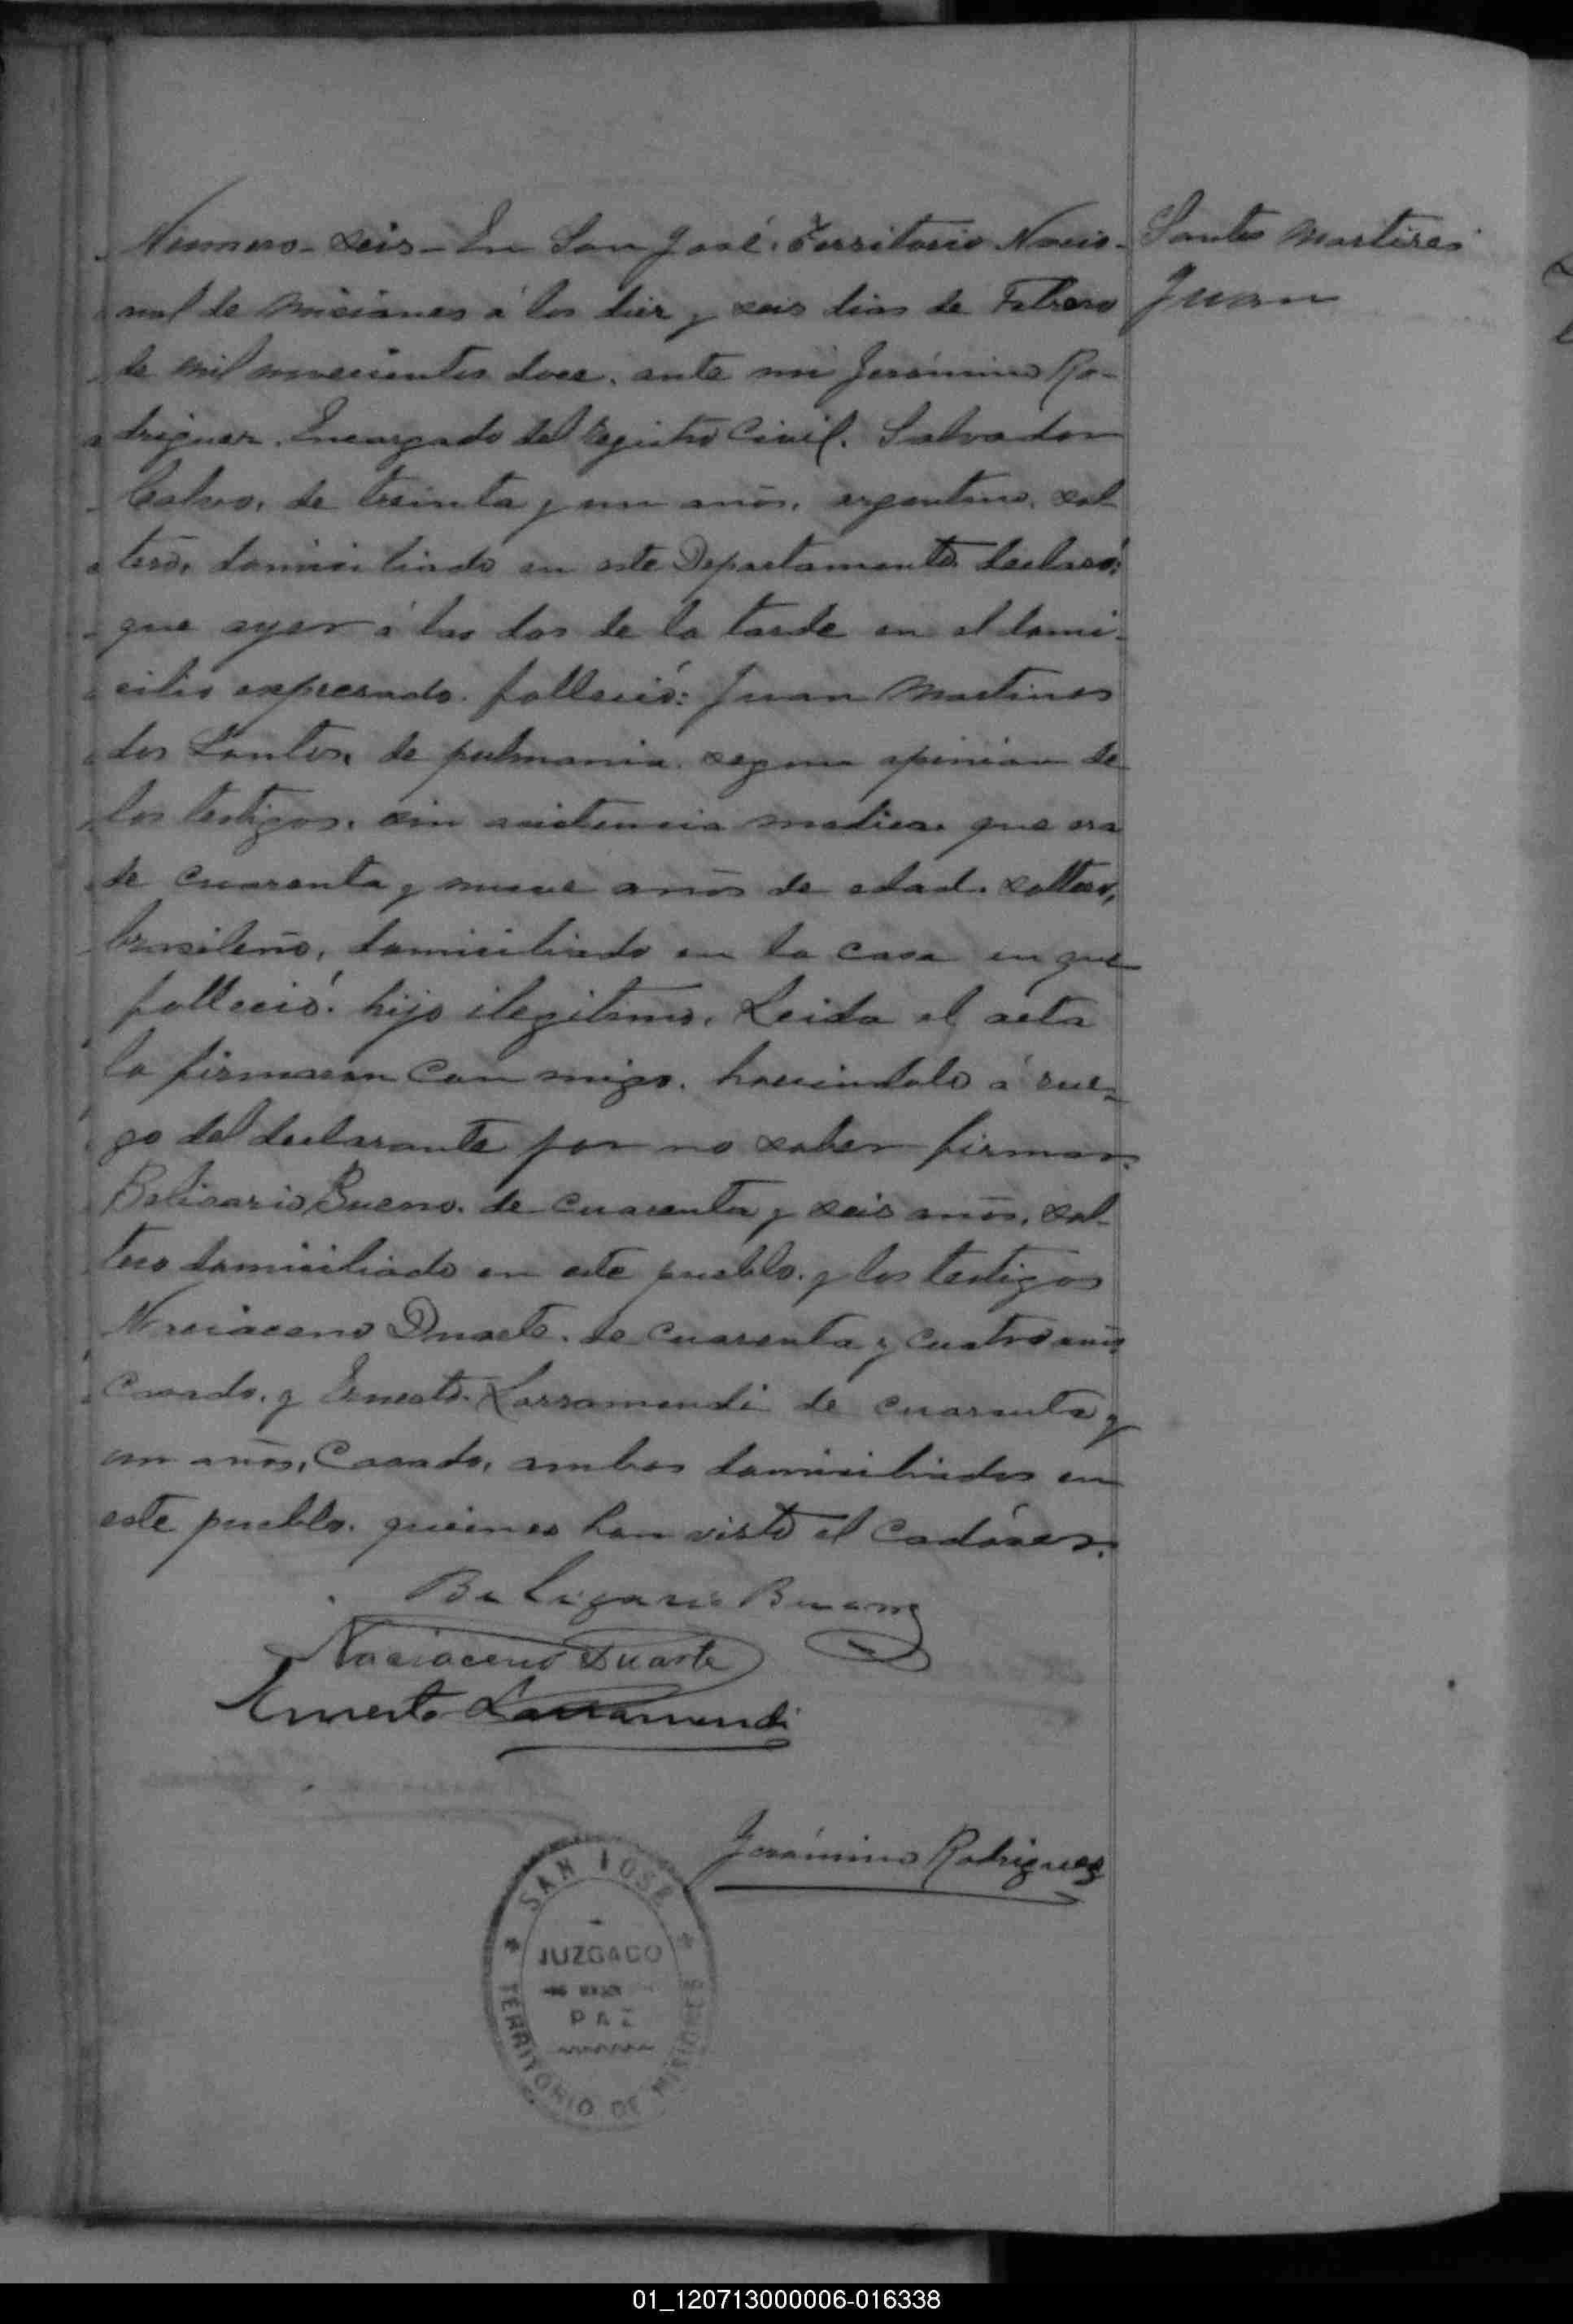 Numero seis - En San José. Territorio Nacio-
nal de Misiones á los diez y seis dias de Febrero
de mil novecientos doce, ante mi Jerónimo Ro-
driguez. Encargado del Registro Civil. Salvador
Calvo, de treinta y un años, argentino, sol-
tero, domiciliado en este Departamento declaró:
que ayer á las dos de la tarde en el domi-
cilio expresado. falleció: Juan Martires
dos Santos, de pulmonia. segun opinion de
los testigos, sin asistencia medica. que era
de cuarenta y nueve años de edad. soltero,
brasileño, domiciliado en la casa en que
falleció. hijo ilegitimo. Leida el acta
la firmaron con migo. haciendolo á rue-
go del declarante por no saber firmar.
Belisario Bueno. de cuarenta y seis años, sol-
tero domiciliado en este pueblo. y los testigos
Duarte. de cuarenta y cuatro años
Casado. y Ernesto Larramendi de cuarenta y
un años, Casado, ambos domiciliados en
este pueblo. quienes han visto el Cadáver.
Santos Martires
Juan
Beligario Bueno
Duarte
Ernesto Larramendi
Jerónimo Rodriguez
SAN JOSE
JUZGADO
DE
PAZ
TERRITORIO DE MISIONES
01_120713000006-016338